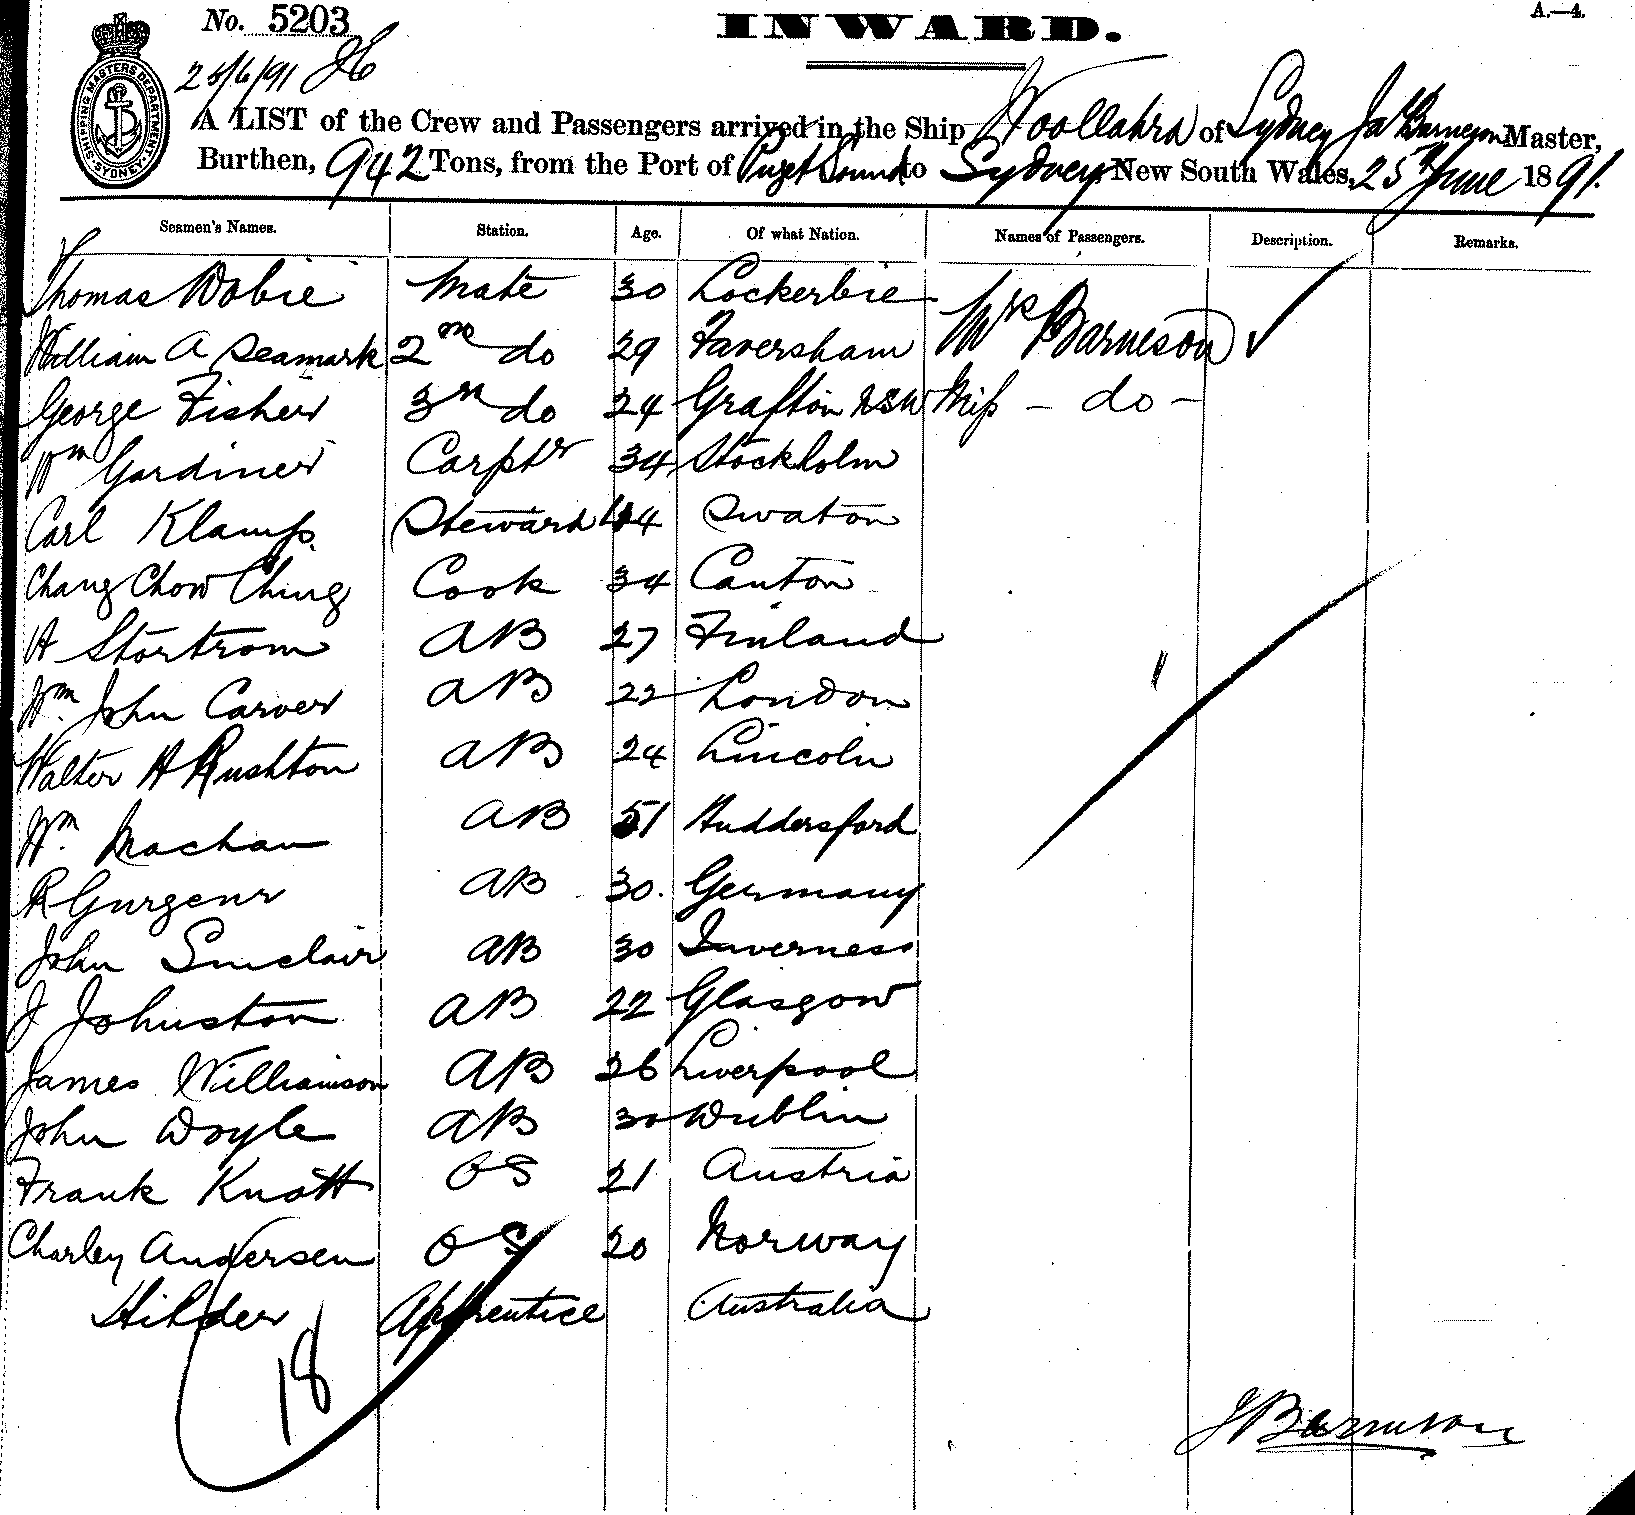 No. 5203
INWARD.
A.—4.
25/6/91
SHIPPING MASTERS DEPARTMENT SYDNEY
A LIST of the Crew and Passengers arrived in the Ship Woollahra of Sydney Jas Barneson Master,
Burthen, 942 Tons, from the Port of Puget Sound to Sydney, New South Wales, 25th June 1891.
Seamen's Names. Station. Age. Of what Nation. Names of Passengers. Description. Remarks.
Thomas Dobie Mate 30 Lockerbie Mrs Barneson ✓
William A Seamark 2nd do 29 Faversham
George Fisher 3rd do 24 Grafton NSW Miss - do -
Wm Gardiner Carptr 34 Stockholm
Carl Klamp Steward 44 Swaton
Chang Chow Ching Cook 34 Canton
A Stortrom AB 27 Finland
Wm John Carver AB 22 London
Walter H Rushton AB 24 Lincoln
Wm Machan AB 51 Huddersford
R Gurgenr AB 30. Germany
John Sinclair AB 30 Inverness
J Johnston AB 22 Glasgow
James Williamson AB 26 Liverpool
John Doyle AB 30 Dublin
Frank Knott OS 21 Austria
Charley Andersen OS 20 Norway
Hilder Apprentice Australia
18
J Barneson